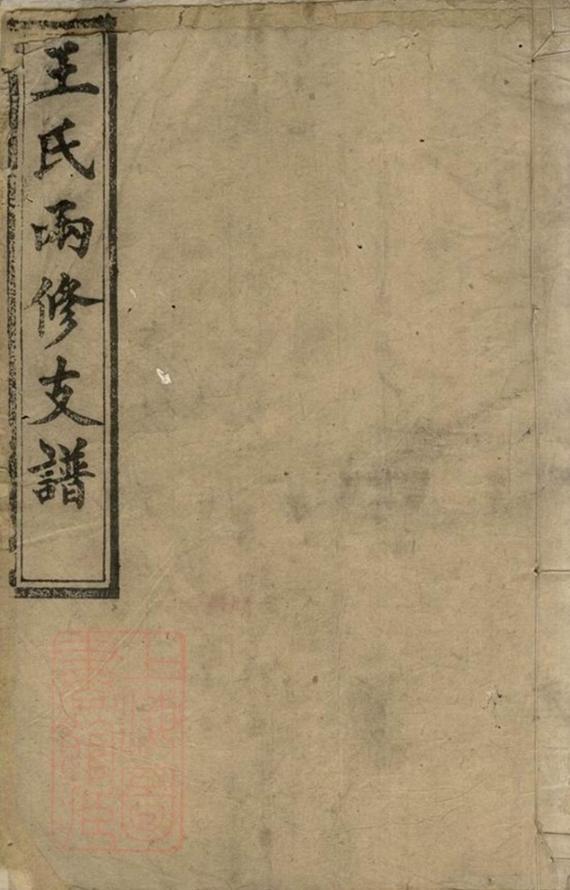 王氏兩修支譜